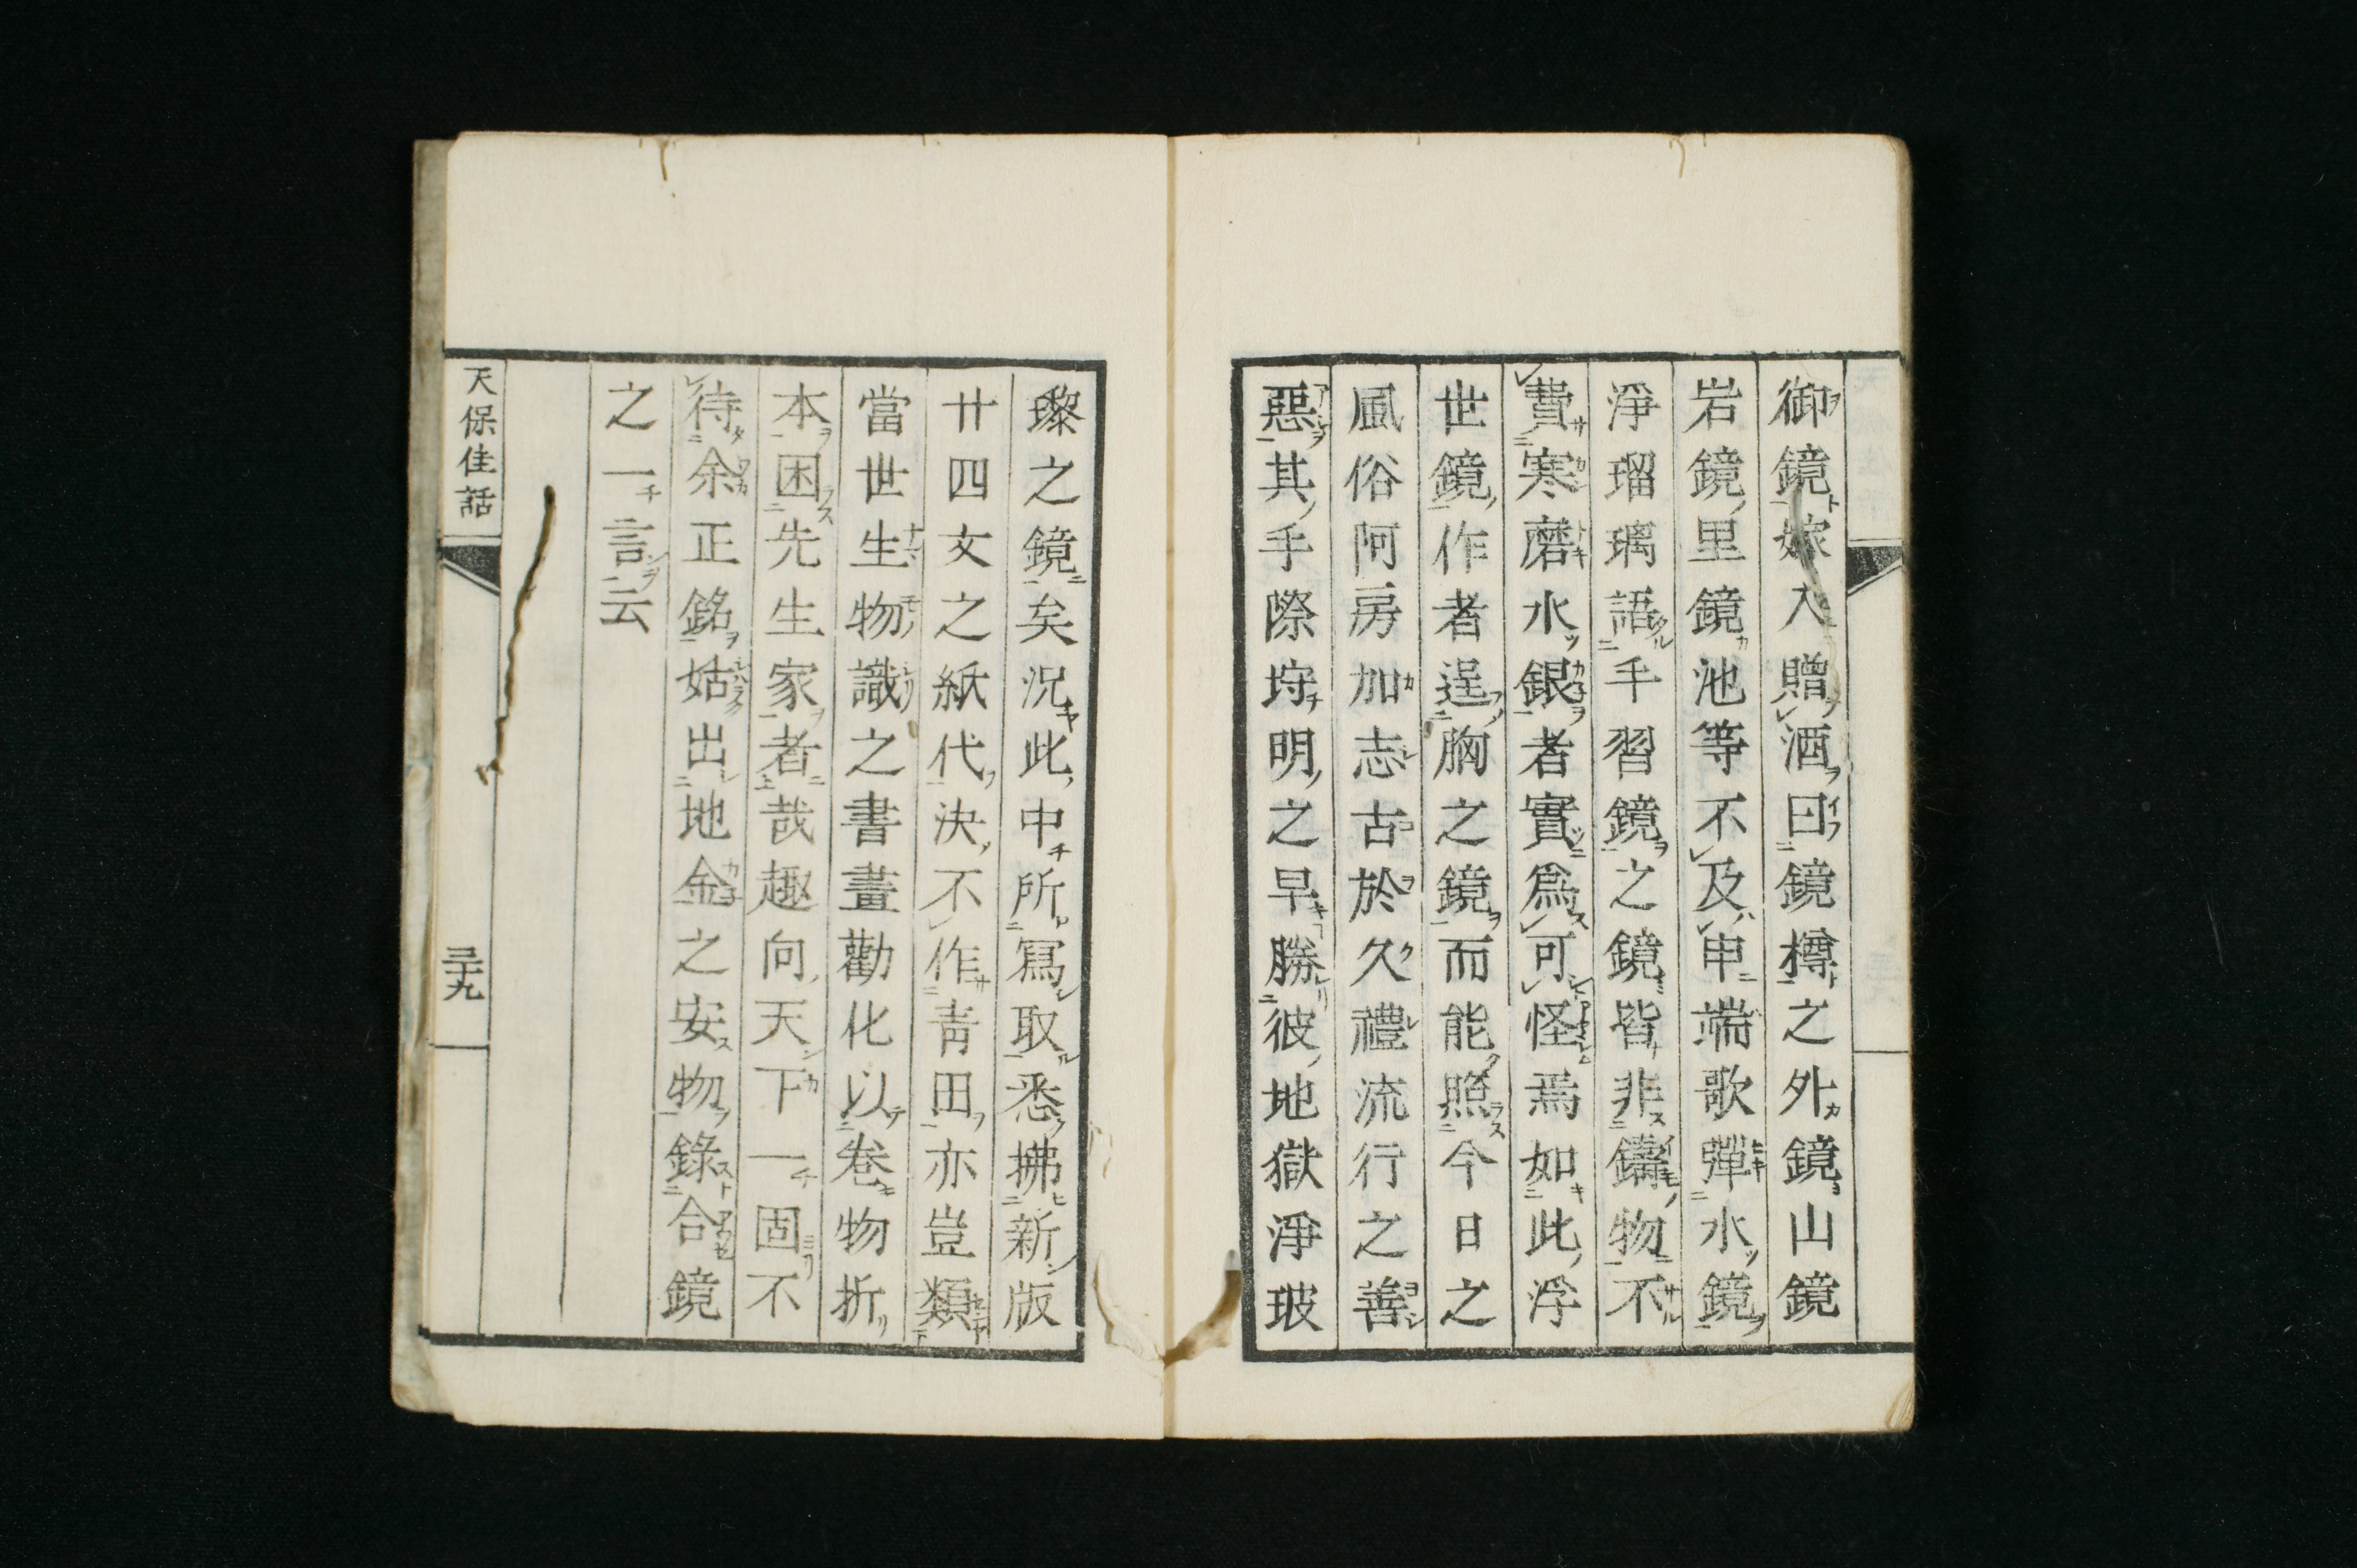 御鏡嫁入贈酒曰鏡樽之外鏡山鏡
岩鏡里鏡池等不及申端歌彈水鏡
淨瑠璃語手習鏡之鏡皆非鑄物不
費寒磨水銀者實爲可怪焉如此浮
世鏡作者逞胸之鏡而能照今日之
風俗阿房加志古於久禮流行之善
惡其手際埒明之早勝彼地獄淨玻
瓈之鏡矣況此中所寫取悉拂新版
廿四文之紙代決不作靑田亦豈類
當世生物識之書畫勸化以卷物折
本困先生家者哉趣向天下一固不
待余正銘姑出地金之安物錄合鏡
之一言云
天保佳話
三十九